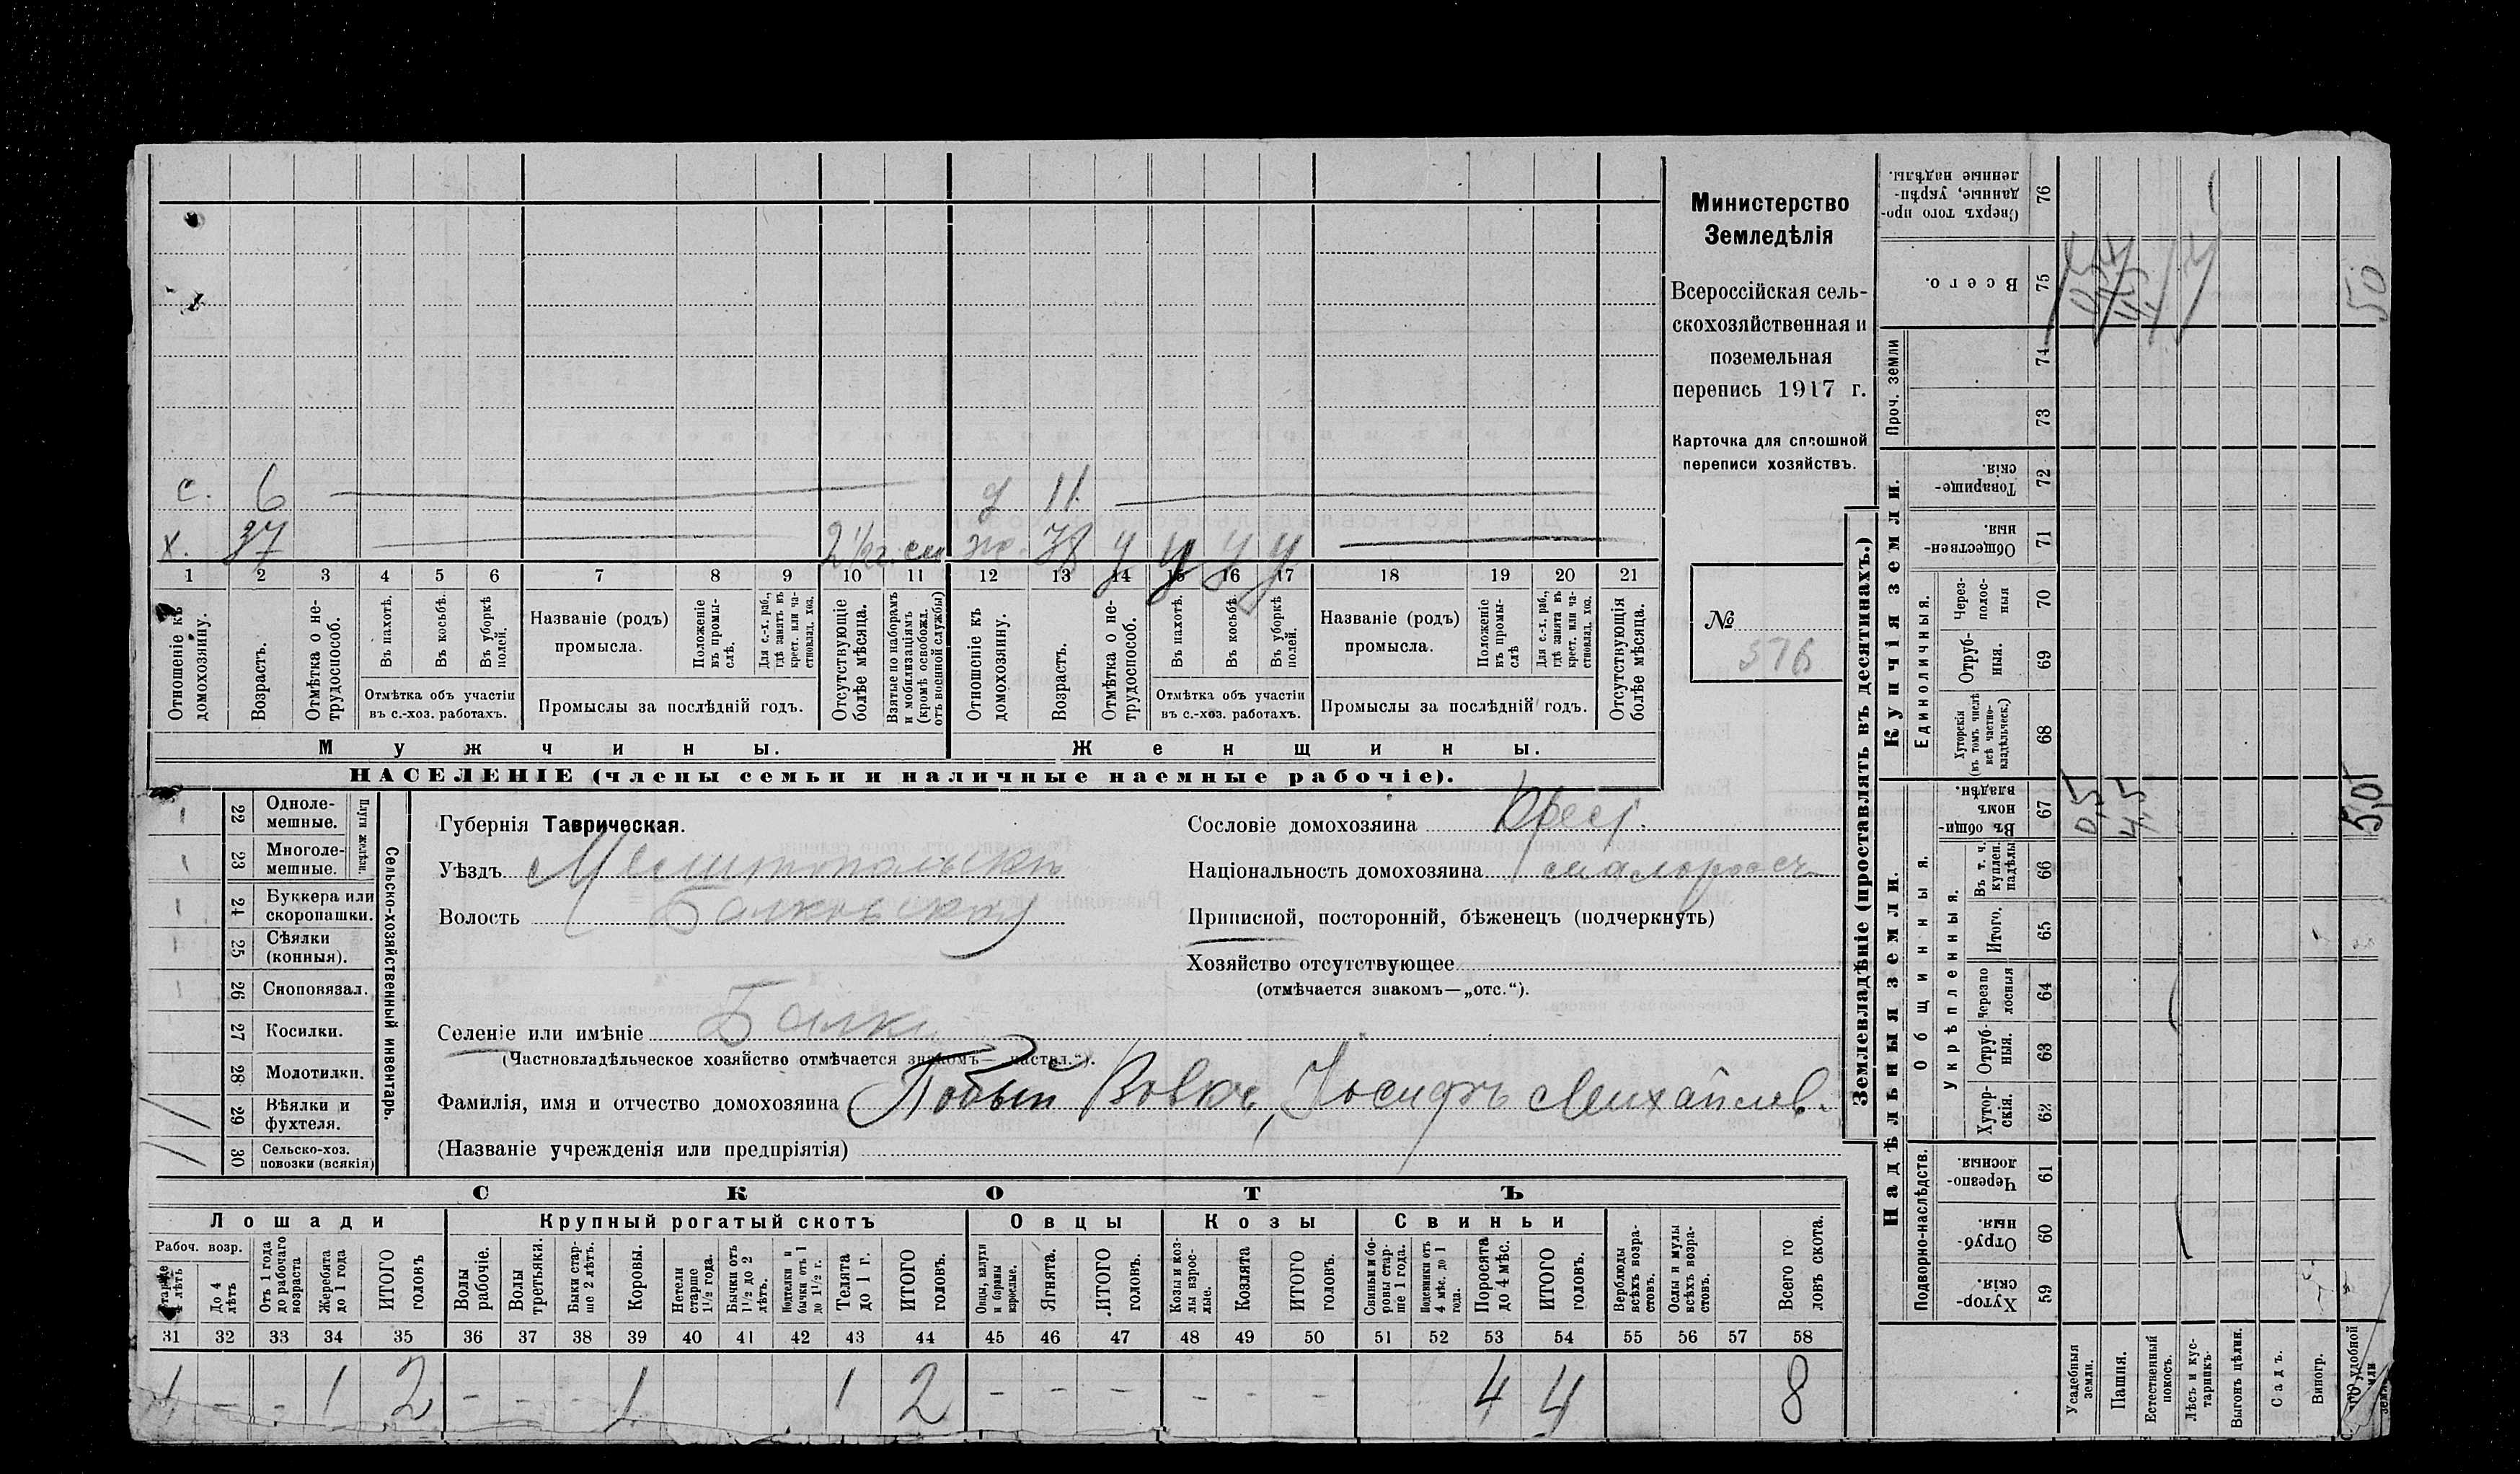 Министерство
Земледѣлія
Всероссійская сель-
скохозяйственная и
поземельная
перепись 1917 г.
Карточка для сплошной
переписи хозяйствъ.
№
576
с. 6 д 11
х. 37 2 1/2 г. 38 у у у у
1 2 3 4 5 6 7 8 9 10 11 12 13 14 15 16 17 18 19 20 21
Отношеніе къ домохозяину.
Возрастъ.
Отмѣтка о не-трудоспособ.
Въ пахотѣ.
Въ косьбѣ.
Въ уборкѣ полей.
Отмѣтка объ участіи въ с.-хоз. работахъ.
Названіе (родъ) промысла.
Положеніе въ промы-слѣ,
Для с.-х. раб., гдѣ занятъ въ крест. или ча-стновлад. хоз.
Промыслы за послѣдній годъ.
Отсутствующіе болѣе мѣсяца.
Взятые по наборамъ и мобилизаціямъ (кромѣ освобожд. отъ военной службы)
Отношеніе къ домохозяину.
Возрастъ.
Отмѣтка о не-трудоспособ.
Въ пахотѣ.
Въ косьбѣ.
Въ уборкѣ полей.
Отмѣтка объ участіи въ с.-хоз. работахъ.
Названіе (родъ) промысла.
Положеніе въ промы-слѣ
Для с.-х. раб., гдѣ занята въ крест. или ча-стновлад. хоз.
Промыслы за послѣдній годъ.
Отсутствующія болѣе мѣсяца.
Мужчины. Женщины.
НАСЕЛЕНІЕ (члены семьи и наличные наемные рабочіе).
Сельско-хозяйственный инвентарь.
Плуги желѣзн.
22 Одноле-мешные.
23 Многоле-мешные.
24 Буккера или скоропашки.
25 Сѣялки (конныя).
26 Сноповязал.
27 Косилки.
28 Молотилки.
29 Вѣялки и фухтеля.
30 Сельско-хоз. повозки (всякія)
Губернія Таврическая.
Уѣздъ Мелитопольскій
Волость Балковская
Селеніе или имѣніе Балки
(Частновладѣльческое хозяйство отмѣчается знакомъ—„частвл.“).
Фамилія, имя и отчество домохозяина Лобый Вовкъ, Іосифъ Михайлов.
(Названіе учрежденія или предпріятія)
Сословіе домохозяина Крест.
Національность домохозяина малоросс.
Приписной, посторонній, бѣженецъ (подчеркнуть)
Хозяйство отсутствующее
(отмѣчается знакомъ—„отс.“).
СКОТЪ
Лошади Крупный рогатый скотъ Овцы Козы Свиньи
Рабоч. возр.
Старше 4 лѣтъ
До 4 лѣтъ
Отъ 1 года до рабочаго возраста
Жеребята до 1 года
ИТОГО головъ
Волы рабочіе.
Волы третьяки.
Быки стар-ше 2 лѣтъ.
Коровы.
Нетели старше 1 1/2 года.
Бычки отъ 1 1/2 до 2 лѣтъ.
Подтелки и бычки отъ 1 до 1 1/2 г.
Телята до 1 г.
ИТОГО головъ.
Овцы, валухи и бараны взрослые.
Ягнята.
ИТОГО головъ.
Козы и коз-лы взрос-лые.
Козлята
ИТОГО головъ.
Свиньи и бо-ровы стар-ше 1 года.
Подсвинки отъ 4 мѣс. до 1 года.
Поросята до 4 мѣс.
ИТОГО головъ.
Верблюды всѣхъ возра-стовъ.
Ослы и мулы всѣхъ возра-стовъ.
Всего го-ловъ скота.
31 32 33 34 35 36 37 38 39 40 41 42 43 44 45 46 47 48 49 50 51 52 53 54 55 56 57 58
1 - - 1 2 - - - 1 1 2 - - - - - - 4 4 8
Землевладѣніе (проставлять въ десятинахъ.)
Купчія земли.
Надѣльныя земли.
Проч. земли
Единоличныя.
Общинныя.
Укрѣпленныя.
Подворно-наслѣдств.
Сверхъ того про-данные, укрѣп-ленные надѣлы. 76
Всего. 75
74
73
Товарище-скія. 72
Обществен-ныя. 71
Через-полос-ныя 70
Отруб-ныя. 69
Хуторскія (въ томъ числѣ всѣ частно-владѣльческ.) 68
Въ общин-номъ владѣн. 67 0,5 4,5 5,0
Въ т. ч. куплен. надѣлы 66
Итого. 65
Черезпо-лосныя 64
Отруб-ныя. 63
Хутор-скія. 62
Черезпо-лосныя. 61
Отруб-ныя. 60
Хутор-скія. 59
Усадебныя земли.
Пашня.
Естественный покосъ.
Лѣсъ и кус-тарникъ.
Выгонъ цѣлин.
Садъ.
Виногр.
50